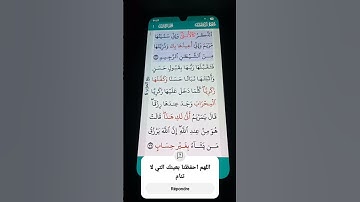 ٱلذَّكَرُ كَٱلْأُنثَىٰ وَإِنِّي سَمَّيْتُهَا
مَرْيَمَ وَإِنِّي أُعِيذُهَا بِكَ وَذُرِّيَّتَهَا
مِنَ ٱلشَّيْطَٰنِ ٱلرَّجِيمِ
فَتَقَبَّلَهَا رَبُّهَا بِقَبُولٍ حَسَنٍ
وَأَنۢبَتَهَا نَبَاتًا حَسَنًا وَكَفَّلَهَا
زَكَرِيَّا كُلَّمَا دَخَلَ عَلَيْهَا زَكَرِيَّا
ٱلْمِحْرَابَ وَجَدَ عِندَهَا رِزْقًا
قَالَ يَٰمَرْيَمُ أَنَّىٰ لَكِ هَٰذَا قَالَتْ
هُوَ مِنْ عِندِ ٱللَّهِ إِنَّ ٱللَّهَ يَرْزُقُ
مَن يَشَآءُ بِغَيْرِ حِسَابٍ
اللهم احفظنا بعينك التي لا
تنام
Répondre